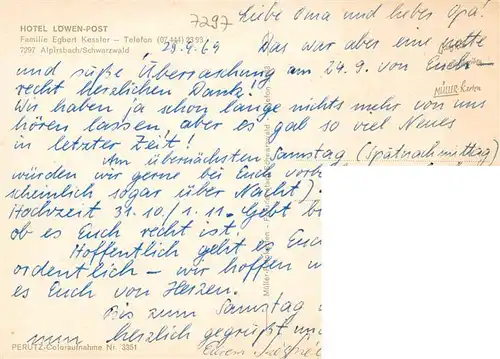 HOTEL LÖWEN-POST
Familie Egbert Kessler – Telefon (07 444) 23 93
7297 Alpirsbach/Schwarzwald
7297
Liebe Oma und lieber Opa!
29.9.69 Das war aber eine nette
und süße Überraschung am 24.9. von Euch –
recht herzlichen Dank!
Wir haben ja schon lange nichts mehr von uns
hören lassen, aber es gab so viel Neues
in letzter Zeit!
Am übernächsten Samstag (Spätnachmittag)
würden wir gerne bei Euch
scheinlich sogar über Nacht).
Hochzeit 31.10./1.11. Gebt
ob es Euch recht ist.
Hoffentlich geht es Euc
ordentlich – wir hoffen
es Euch von Herzen.
Bis zum Samstag
herzlich gegrüßt und
Eurem
PERUTZ-Coloraufnahme Nr. 3351
MÜLLER-Karten